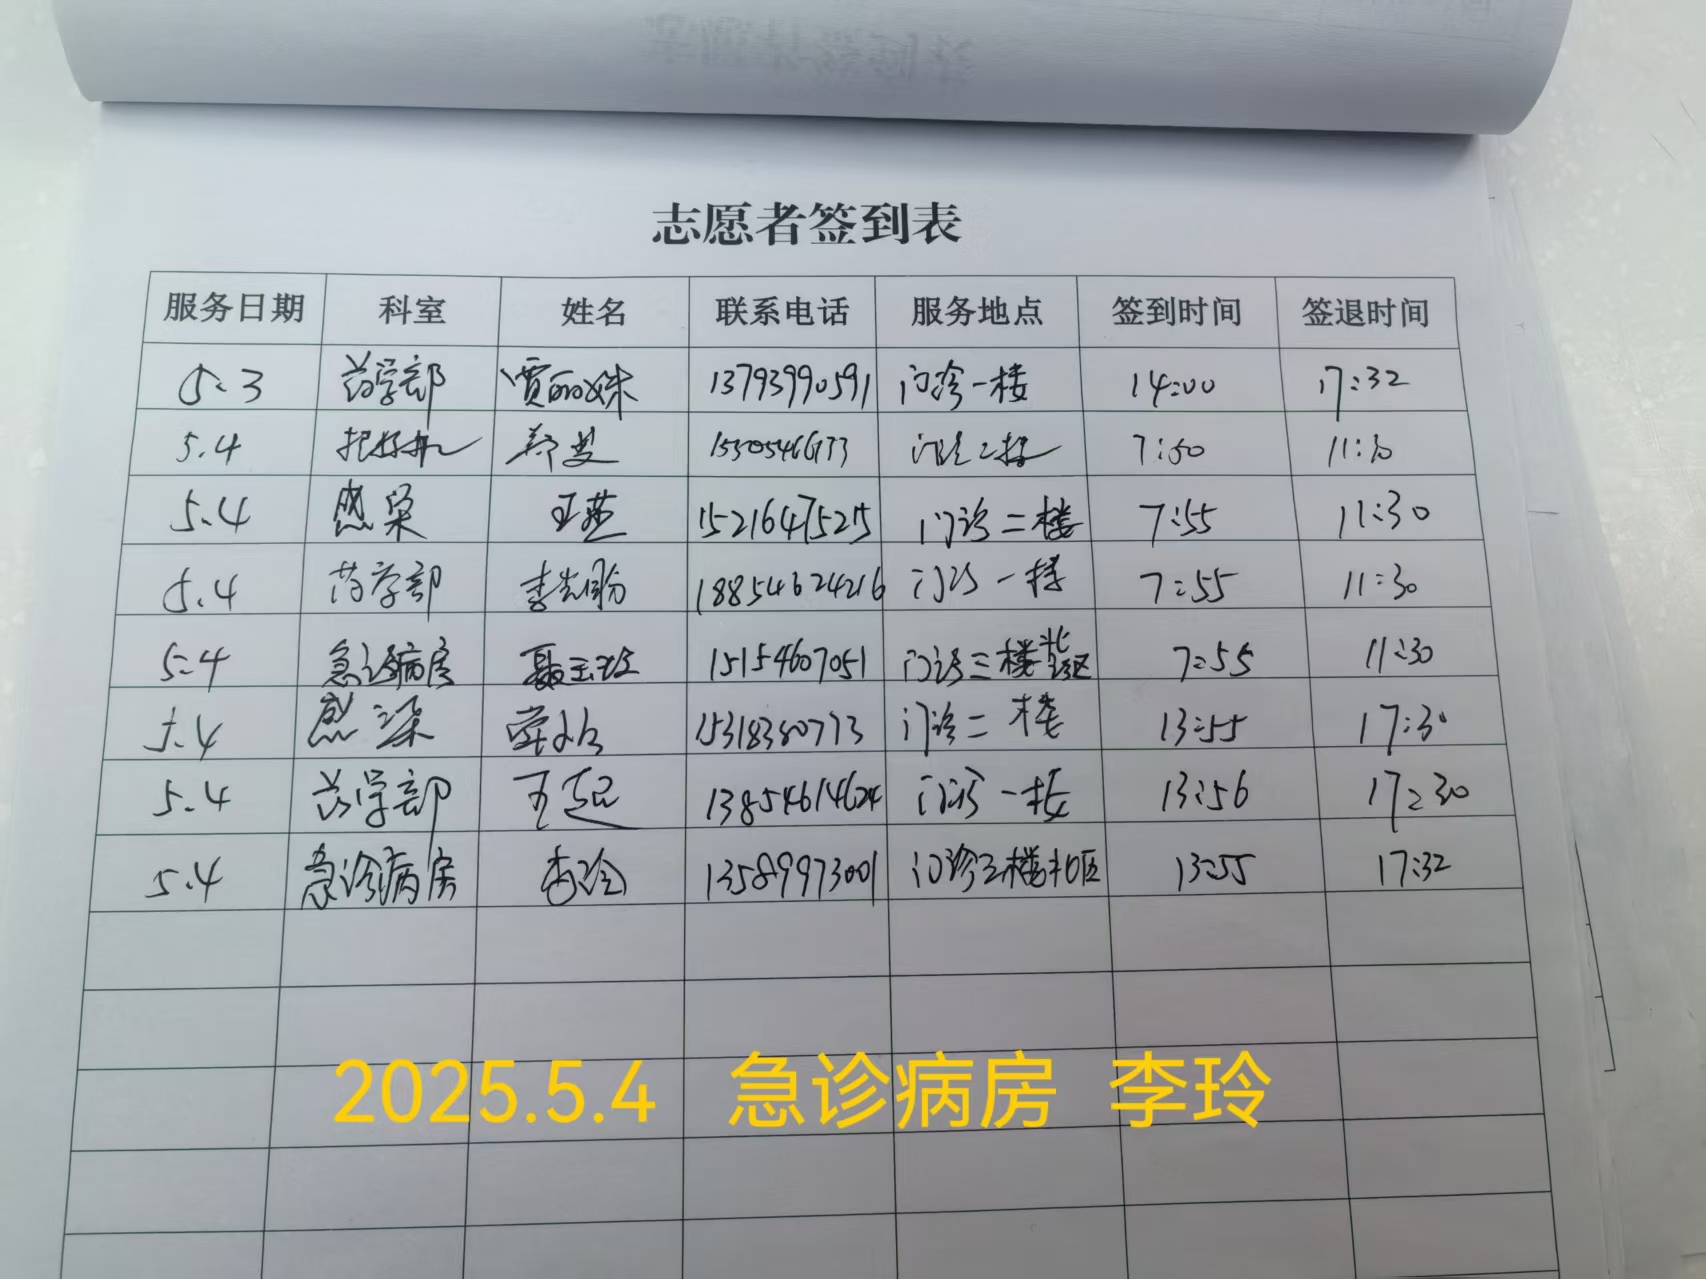 志愿者签到表
服务日期 科室 姓名 联系电话 服务地点 签到时间 签退时间
5.3 药学部 贾丽姝 13793990591 门诊一楼 14:00 17:32
5.4 郑斐 门诊二楼 7:50 11:30
5.4 感染 王燕 15216475215 门诊二楼 7:55 11:30
5.4 药学部 李 18854624216 门诊一楼 7:55 11:30
5.4 急诊病房 聂玉 15154607051 门诊三楼北区 7:55 11:30
5.4 感染 15318380773 门诊二楼 13:55 17:30
5.4 药学部 王 13854614624 门诊一楼 13:56 17:30
5.4 急诊病房 李玲 13589973001 门诊三楼北区 13:55 17:32
2025.5.4 急诊病房 李玲